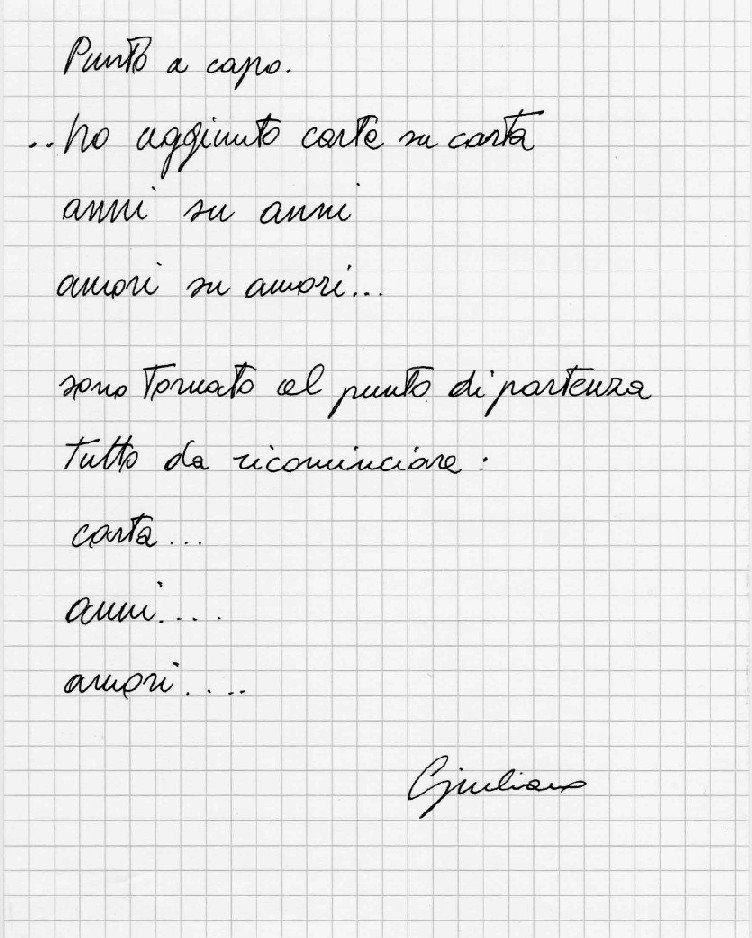 Punto a capo.
..ho aggiunto carta su carta
anni su anni
amori su amori...
sono tornato al punto di partenza
tutto da ricominciare:
carta...
anni....
amori....
Giuliano